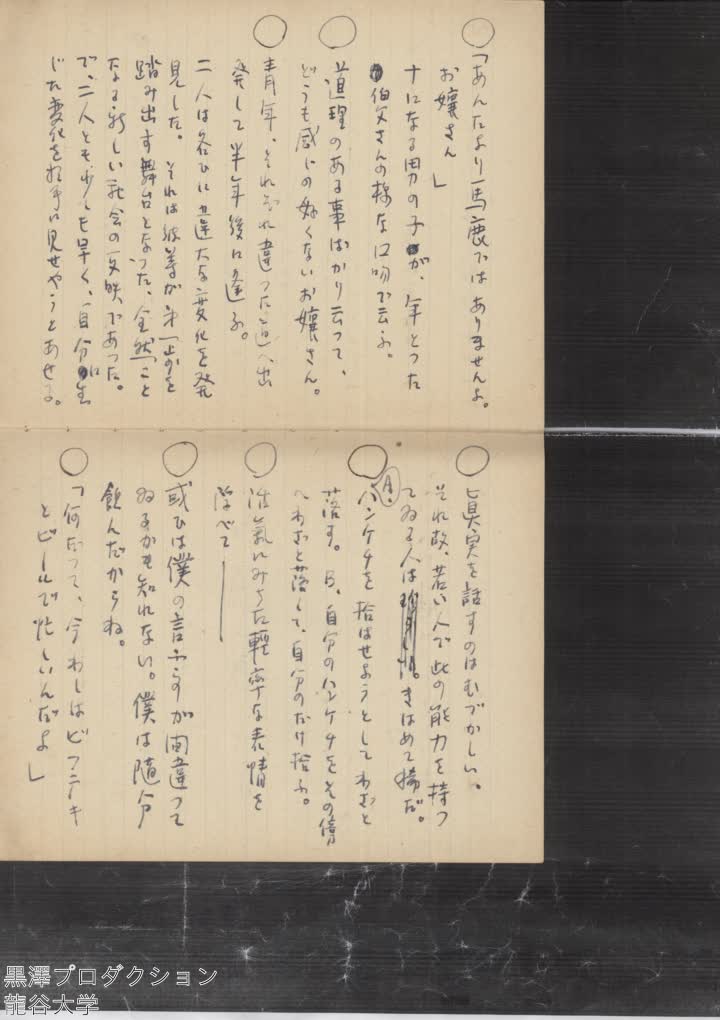 ○「あんたより馬鹿ではありませんよ。
お嬢さん」
十になる男の子が、年とった
伯父さんの様な口吻で云ふ。
○道理のある事ばかり云って、
どうも感じの好くないお嬢さん。
○青年、それぞれ違った道へ出
発して半年後に逢ふ。
二人は各〻に違大な変化を発
見した。それは彼等が第一歩を
踏み出す舞台となった、全然こと
なる新しい社会の反映であった。
で、二人とも少しも早く、自分に生
じた変化を相手に見せやうとあせる。
○真実を話すのはむづかしい。
それ故、若い人で此の能力を持つ
てゐる人は きはめて稀だ。
○A.ハンケチを拾はせようとしてわざと
落す。B、自分のハンケチをその傍
へわざと落して、自分のだけ拾ふ。
○活気にみちた軽率な表情を
浮べて――
○或ひは僕の言ふ方が間違って
ゐるかも知れない。僕は随分
飲んだからね。
○「何だって、今わしはビフテキ
とビールで忙しいんだよ」
黒澤プロダクション
龍谷大学